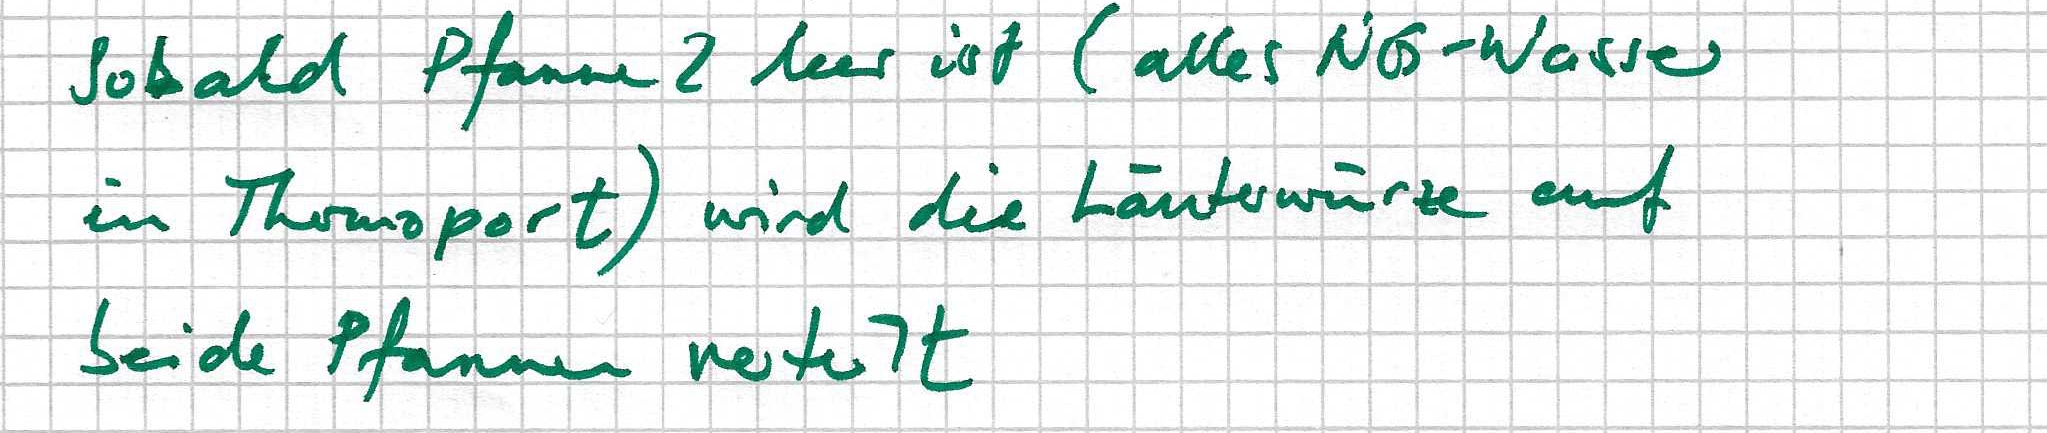 Sobald Pfanne 2 leer ist (alles NG-Wasser
in Thermoport) wird die Läuterwürze auf
beide Pfannen verteilt